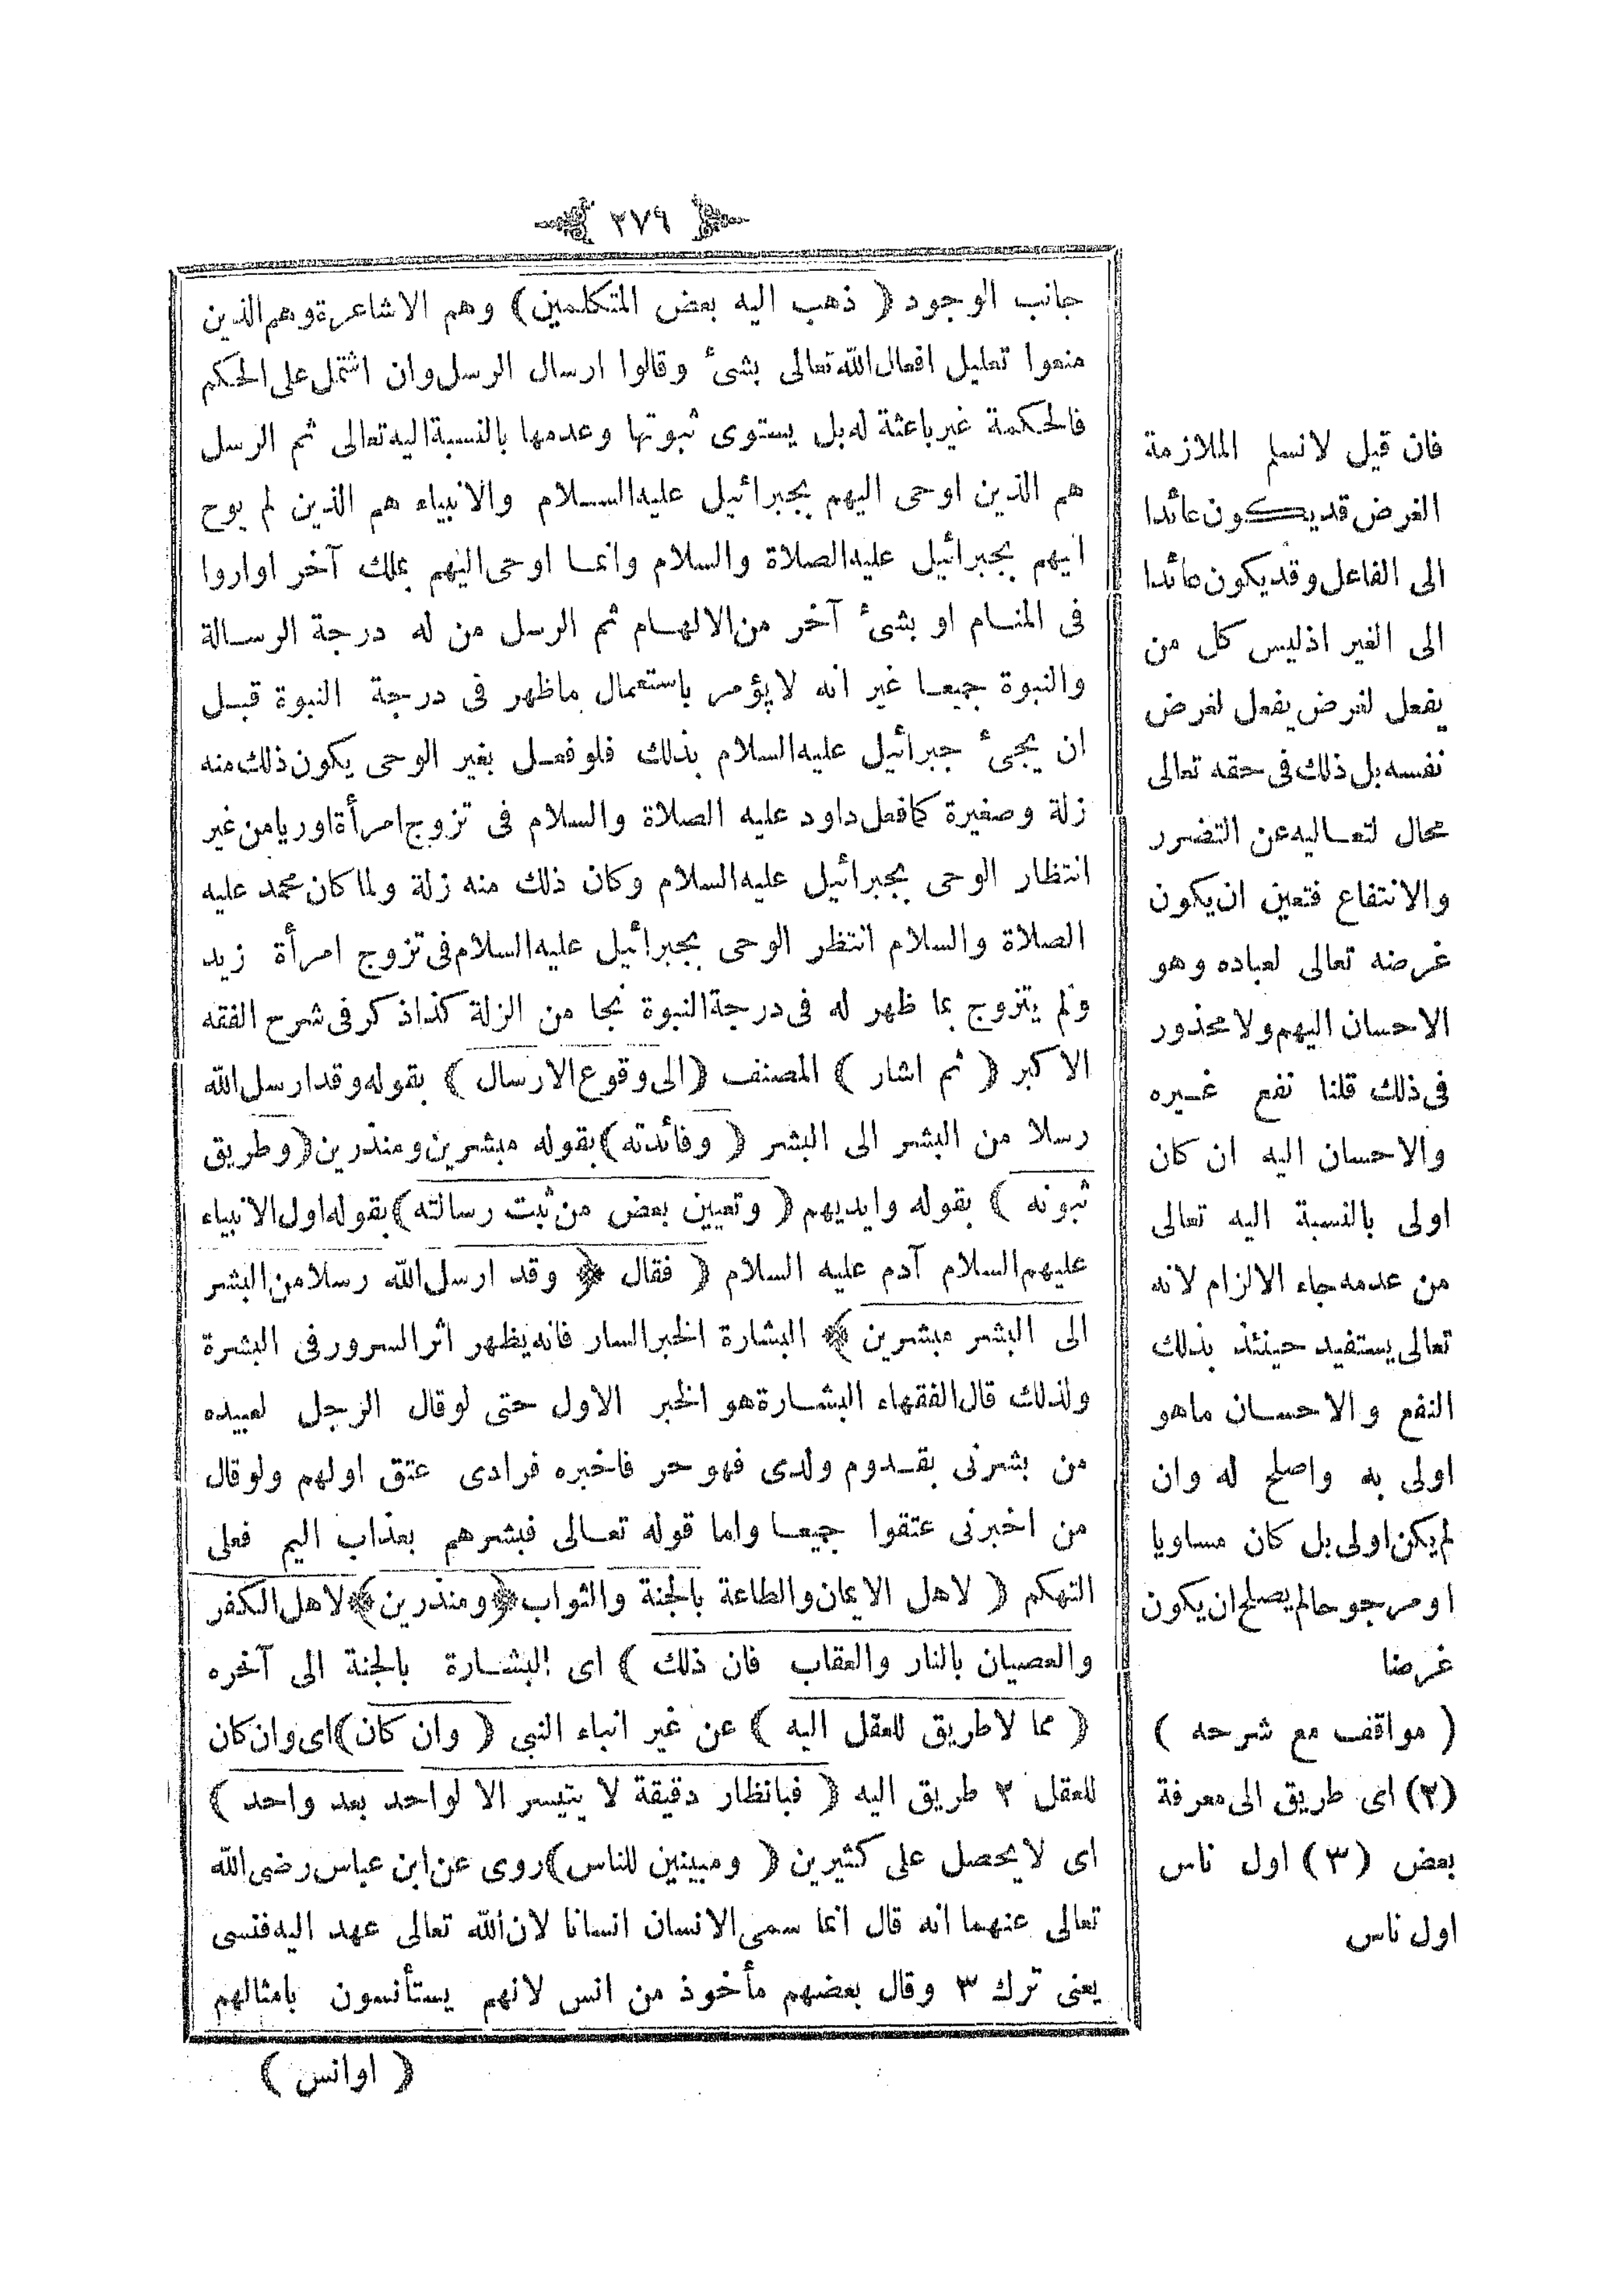 ٢٧٩
جانب الوجود ( ذهب اليه بعض المتكلمين ) وهم الاشاعرة وهم الذين
منعوا تعليل افعال الله تعالى بشئ وقالوا ارسال الرسل وان اشتمل على الحكم
فالحكمة غير باعثة له بل يستوى ثبوتها وعدمها بالنسبة اليه تعالى ثم الرسل
هم الذين اوحى اليهم بجبرائيل عليه السلام والانبياء هم الذين لم يوح
اليهم بجبرائيل عليه الصلاة والسلام وانما اوحى اليهم بملك آخر او اروا
فى المنام او بشئ آخر من الالهام ثم الرسل من له درجة الرسالة
والنبوة جيعا غير انه لا يؤمر باستعمال ماظهر فى درجة النبوة قبل
ان يجئ جبرائيل عليه السلام بذلك فلو فعل بغير الوحى يكون ذلك منه
زلة وصغيرة كما فعل داود عليه الصلاة والسلام فى تزوج امرأة اوريا من غير
انتظار الوحى بجبرائيل عليه السلام وكان ذلك منه زلة ولما كان محمد عليه
الصلاة والسلام انتظر الوحى بجبرائيل عليه السلام فى تزوج امرأة زيد
ولم يتزوج بما ظهر له فى درجة النبوة نجا من الزلة كذا ذكر فى شرح الفقه
الاكبر ( ثم اشار ) المصنف ( الى وقوع الارسال ) بقوله وقد ارسل الله
رسلا من البشر الى البشر ( وفائدته ) بقوله مبشرين ومنذرين ( وطريق
ثبوته ) بقوله وايديهم ( وتعيين بعض من ثبت رسالته ) بقوله اول الانبياء
عليهم السلام آدم عليه السلام ( فقال ﴿ وقد ارسل الله رسلا من البشر
الى البشر مبشرين ﴾ البشارة الخبر السار فانه يظهر اثر السرور فى البشرة
ولذلك قال الفقهاء البشارة هو الخبر الاول حتى لو قال الرجل لعبيده
من بشرنى بقدوم ولدى فهو حر فاخبره فرادى عتق اولهم ولو قال
من اخبرنى عتقوا جيعا واما قوله تعالى فبشرهم بعذاب اليم فعلى
التهكم ( لاهل الايمان والطاعة بالجنة والثواب ﴿ ومنذرين ﴾ لاهل الكفر
والعصيان بالنار والعقاب فان ذلك ) اى البشارة بالجنة الى آخره
( مما لا طريق للعقل اليه ) عن غير انباء النبى ( وان كان ) اى وان كان
للعقل ٢ طريق اليه ( فبانظار دقيقة لا يتيسر الا لواحد بعد واحد )
اى لا يحصل على كثيرين ( ومبينين للناس ) روى عن ابن عباس رضى الله
تعالى عنهما انه قال انما سمى الانسان انسانا لان الله تعالى عهد اليه فنسى
يعنى ترك ٣ وقال بعضهم مأخوذ من انس لانهم يستأنسون بامثالهم
( اوانس )
فان قيل لانسلم الملازمة
الغرض قد يكون عائدا
الى الفاعل وقد يكون عائدا
الى الغير اذ ليس كل من
يفعل لغرض يفعل لغرض
نفسه بل ذلك فى حقه تعالى
محال لتعاليه عن التضرر
والانتفاع فتعين ان يكون
غرضه تعالى لعباده وهو
الاحسان اليهم ولا محذور
فى ذلك قلنا نفع غيره
والاحسان اليه ان كان
اولى بالنسبة اليه تعالى
من عدمه جاء الالزام لانه
تعالى يستفيد حينئذ بذلك
النفع والاحسان ماهو
اولى به واصلح له وان
لم يكن اولى بل كان مساويا
او مرجوحا لم يصلح ان يكون
غرضا
( مواقف مع شرحه )
(٢) اى طريق الى معرفة
بعض (٣) اول ناس
اول ناس